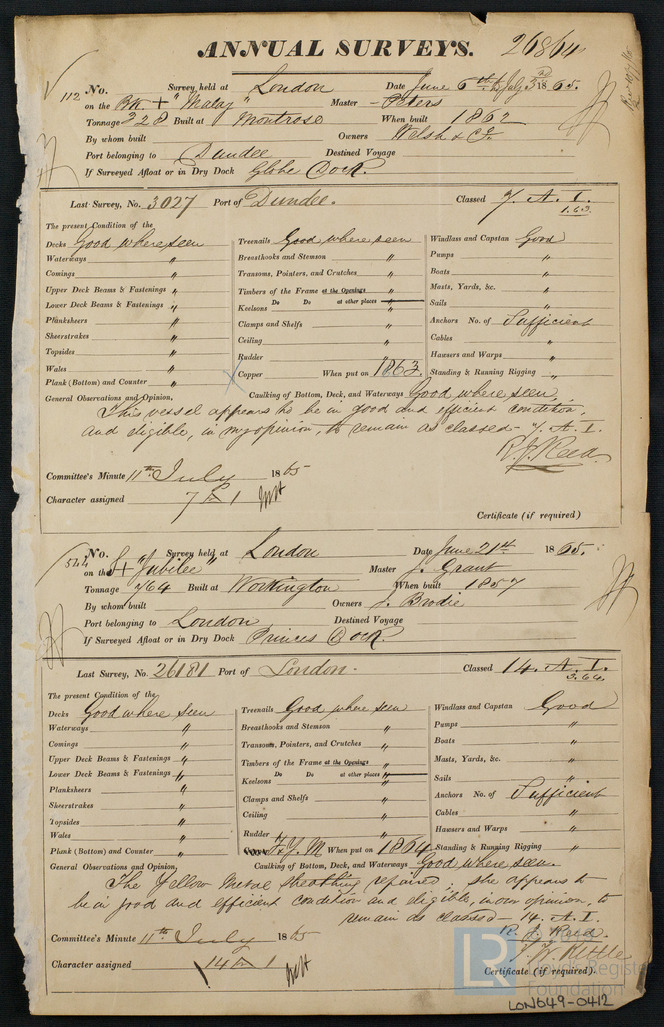 ANNUAL SURVEYS. 26864
112 No. Survey held at London Date June 6th & July 3rd 1865.
on the Bk + "Malay" Master - Peters
Tonnage 328 Built at Montrose When built 1862
By whom built Owners Welsh & Co.
Port belonging to Dundee Destined Voyage
If Surveyed Afloat or in Dry Dock Globe Dock.
Last Survey, No. 3027 Port of Dundee. Classed 7. A. I.
1.63.
The present Condition of the
Decks Good where seen
Waterways "
Comings "
Upper Deck Beams & Fastenings "
Lower Deck Beams & Fastenings "
Planksheers "
Sheerstrakes "
Topsides "
Wales "
Plank (Bottom) and Counter "
Treenails Good where seen
Breasthooks and Stemson "
Transoms, Pointers, and Crutches "
Timbers of the Frame at the Openings "
Do Do at other places "
Keelsons "
Clamps and Shelfs "
Ceiling "
Rudder "
Copper When put on 1863.
Windlass and Capstan Good
Pumps "
Boats "
Masts, Yards, &c. "
Sails "
Anchors No. of Sufficient
Cables "
Hawsers and Warps "
Standing & Running Rigging "
General Observations and Opinion, Caulking of Bottom, Deck, and Waterways Good where seen,
This vessel appears to be in good and efficient condition,
and eligible, in my opinion, to remain as classed - 7. A. I.
R. J. Reed.
Committee's Minute 11th July 1865
Character assigned 7 A 1
Certificate (if required)
544 No. Survey held at London Date June 21st 1865.
on the S + "Jubilee" Master J. Grant
Tonnage 764 Built at Workington When built 1857
By whom built Owners J. Brodie
Port belonging to London Destined Voyage
If Surveyed Afloat or in Dry Dock Princes Dock.
Last Survey, No. 26181 Port of London. Classed 14. A. I.
3.64.
The present Condition of the
Decks Good where seen
Waterways "
Comings "
Upper Deck Beams & Fastenings "
Lower Deck Beams & Fastenings "
Planksheers "
Sheerstrakes "
Topsides "
Wales "
Plank (Bottom) and Counter "
Treenails Good where seen
Breasthooks and Stemson "
Transoms, Pointers, and Crutches "
Timbers of the Frame at the Openings "
Do Do at other places "
Keelsons "
Clamps and Shelfs "
Ceiling "
Rudder "
Y. M When put on 1864
Windlass and Capstan Good
Pumps "
Boats "
Masts, Yards, &c. "
Sails "
Anchors No. of Sufficient
Cables "
Hawsers and Warps "
Standing & Running Rigging "
General Observations and Opinion, Caulking of Bottom, Deck, and Waterways Good where seen.
The Yellow Metal Sheathing repaired, she appears to
be in good and efficient condition and eligible, in our opinion, to
remain as classed - 14. A. I.
R. J. Reed.
J. W. Kettle
Committee's Minute 11th July 1865
Character assigned 14 A 1
Certificate (if required).
LR Register
Foundation
LON649-0412